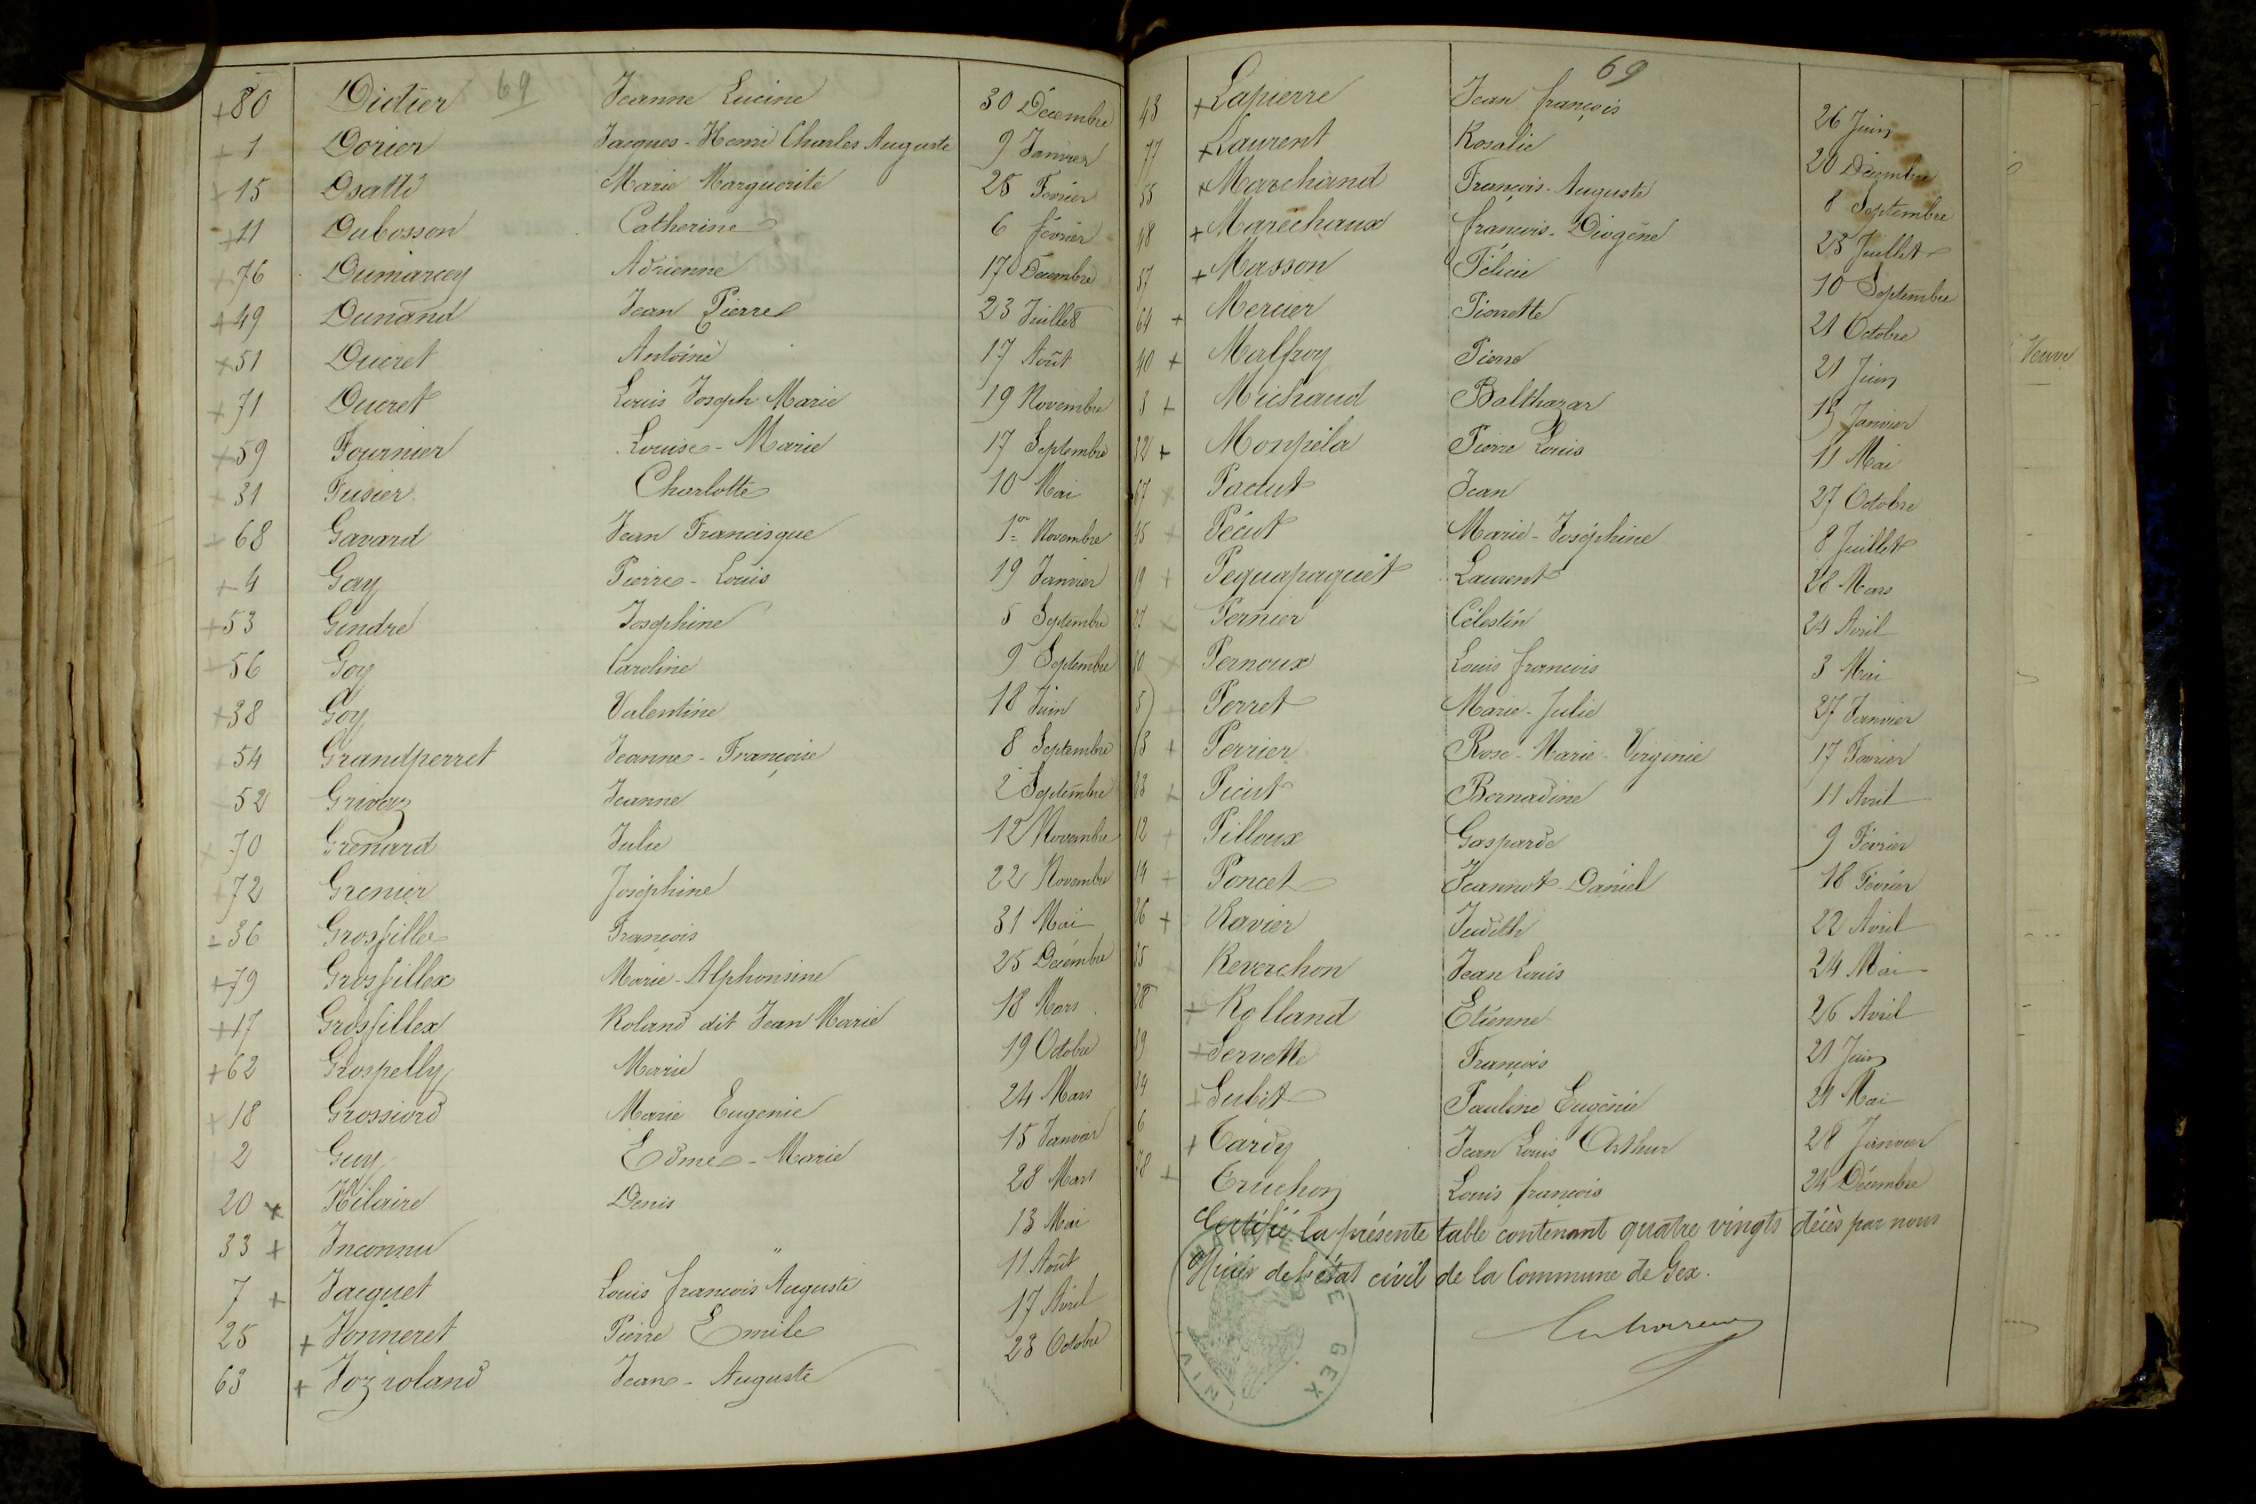 69
+80 Didier Jeanne Lucine 30 Décembre
+ 1 Dorier Jacques-Henri Charles Auguste 9 Janvier
+ 15 Dsatti Marie Marguerite 25 Fevrier
+ 11 Dubosson Catherine 6 février
+ 76 Dumarcey Adrienne 17 Decembre
+ 49 Dunand Jean Pierre 23 Juillet
+ 51 Ducret Antoine 17 Août
+ 71 Ducret Louis Joseph Marie 19 Novembre
+ 59 Fournier Louise-Marie 17 Septembre
+ 31 Fusier Charlotte 10 Mai
+ 68 Gavard Jean Francisque 1er Novembre
+ 4 Gay Pierre-Louis 19 Janvier
+ 53 Gindre Josephine 5 Septembre
+ 56 Goy Caroline 9 Septembre
+ 38 Goy Valentine 18 Juin
+ 54 Grandperret Jeanne-Françoise 8 Septembre
+ 52 Grivaz Jeanne 2 Septembre
+ 70 Grenard Julie 12 Novembre
+ 72 Grenier Joséphine 22 Novembre
+ 36 Grosfillex François 31 Mai
+ 79 Grosfillex Marie-Alphonsine 25 Decembre
+ 17 Grosfillex Roland dit Jean Marie 18 Mars
+ 62 Grospelly Marie 19 Octobre
+ 18 Grossiord Marie Eugenie 24 Mars
2 Guy Edmée-Marie 15 Janvier
20 + Hilaire Denis 28 Mars
33 + Inconnu " 13 Mai
7 + Jacquet Louis françois Auguste 11 Août
25 + Jonneret Pierre Emile 17 Avril
63 + Jozroland Jean-Auguste 23 Octobre
69
43 + Lapierre Jean françois 26 Juin
77 + Laurent Rosalie 20 Decembre
55 + Marchand François-Auguste 8 Septembre
48 + Maréchaux françois-Diogène 23 Juillet
57 + Masson Félicie 10 Septembre
64 + Mercier Pierrette 21 Octobre
40 + Malfroy Pierre 21 Juin
3 + Michaud Balthazar 15 Janvier
32 + Monpela Pierre Louis 11 Mai
67 + Pacut Jean 27 Octobre
45 + Pécut Marie-Joséphine 8 Juillet
19 + Pequapaquet Laurent 28 Mars
27 + Pernier Célestin 24 Avril
30 + Pernoux Louis françois 3 Mai
5 Perret Marie-Julie 27 Janvier
13 + Perrier Rose-Marie-Virginie 17 Fevrier
23 + Picut Bernadine 11 Avril
12 + Pilloux Gasparde 9 Février
14 + Poncet Jeannot-Daniel 18 Février
26 + Ravier Judith 22 Avril
35 Reverchon Jean Louis 24 Mai
28 + Rolland Etienne 26 Avril
39 + Servette François 21 Juin
34 + Subit Pauline Eugénie 21 Mai
6 + Tardy Jean Louis Arthur 28 Janvier
78 + Truchon Louis françois 24 Décembre
Certifié la présente table contenant quatre vingts décès par nous
Officier de l'état civil de la Commune de Gex.
MAIRIE DE GEX
(AIN)
Veuve